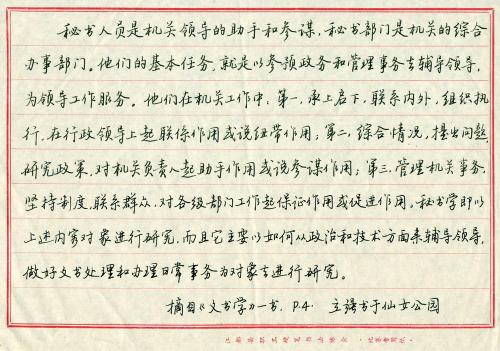 秘书人员是机关领导的助手和参谋，秘书部门是机关的综合
办事部门。他们的基本任务，就是以参预政务和管理事务去辅导领导，
为领导工作服务。他们在机关工作中，第一，承上启下，联系内外，组织执
行，在行政领导上起联系作用或说纽带作用；第二，综合情况，提出问题，
研究政策，对机关负责人起助手作用或说参谋作用；第三，管理机关事务，
坚持制度，联系群众，对各级部门工作起保证作用或促进作用。秘书学即以
上述内容对象进行研究，而且它主要以如何从政治和技术方面来辅导领导，
做好文书处理和办理日常事务为对象去进行研究。
摘自《文书学》一书，P.4. 立强书于仙女公园